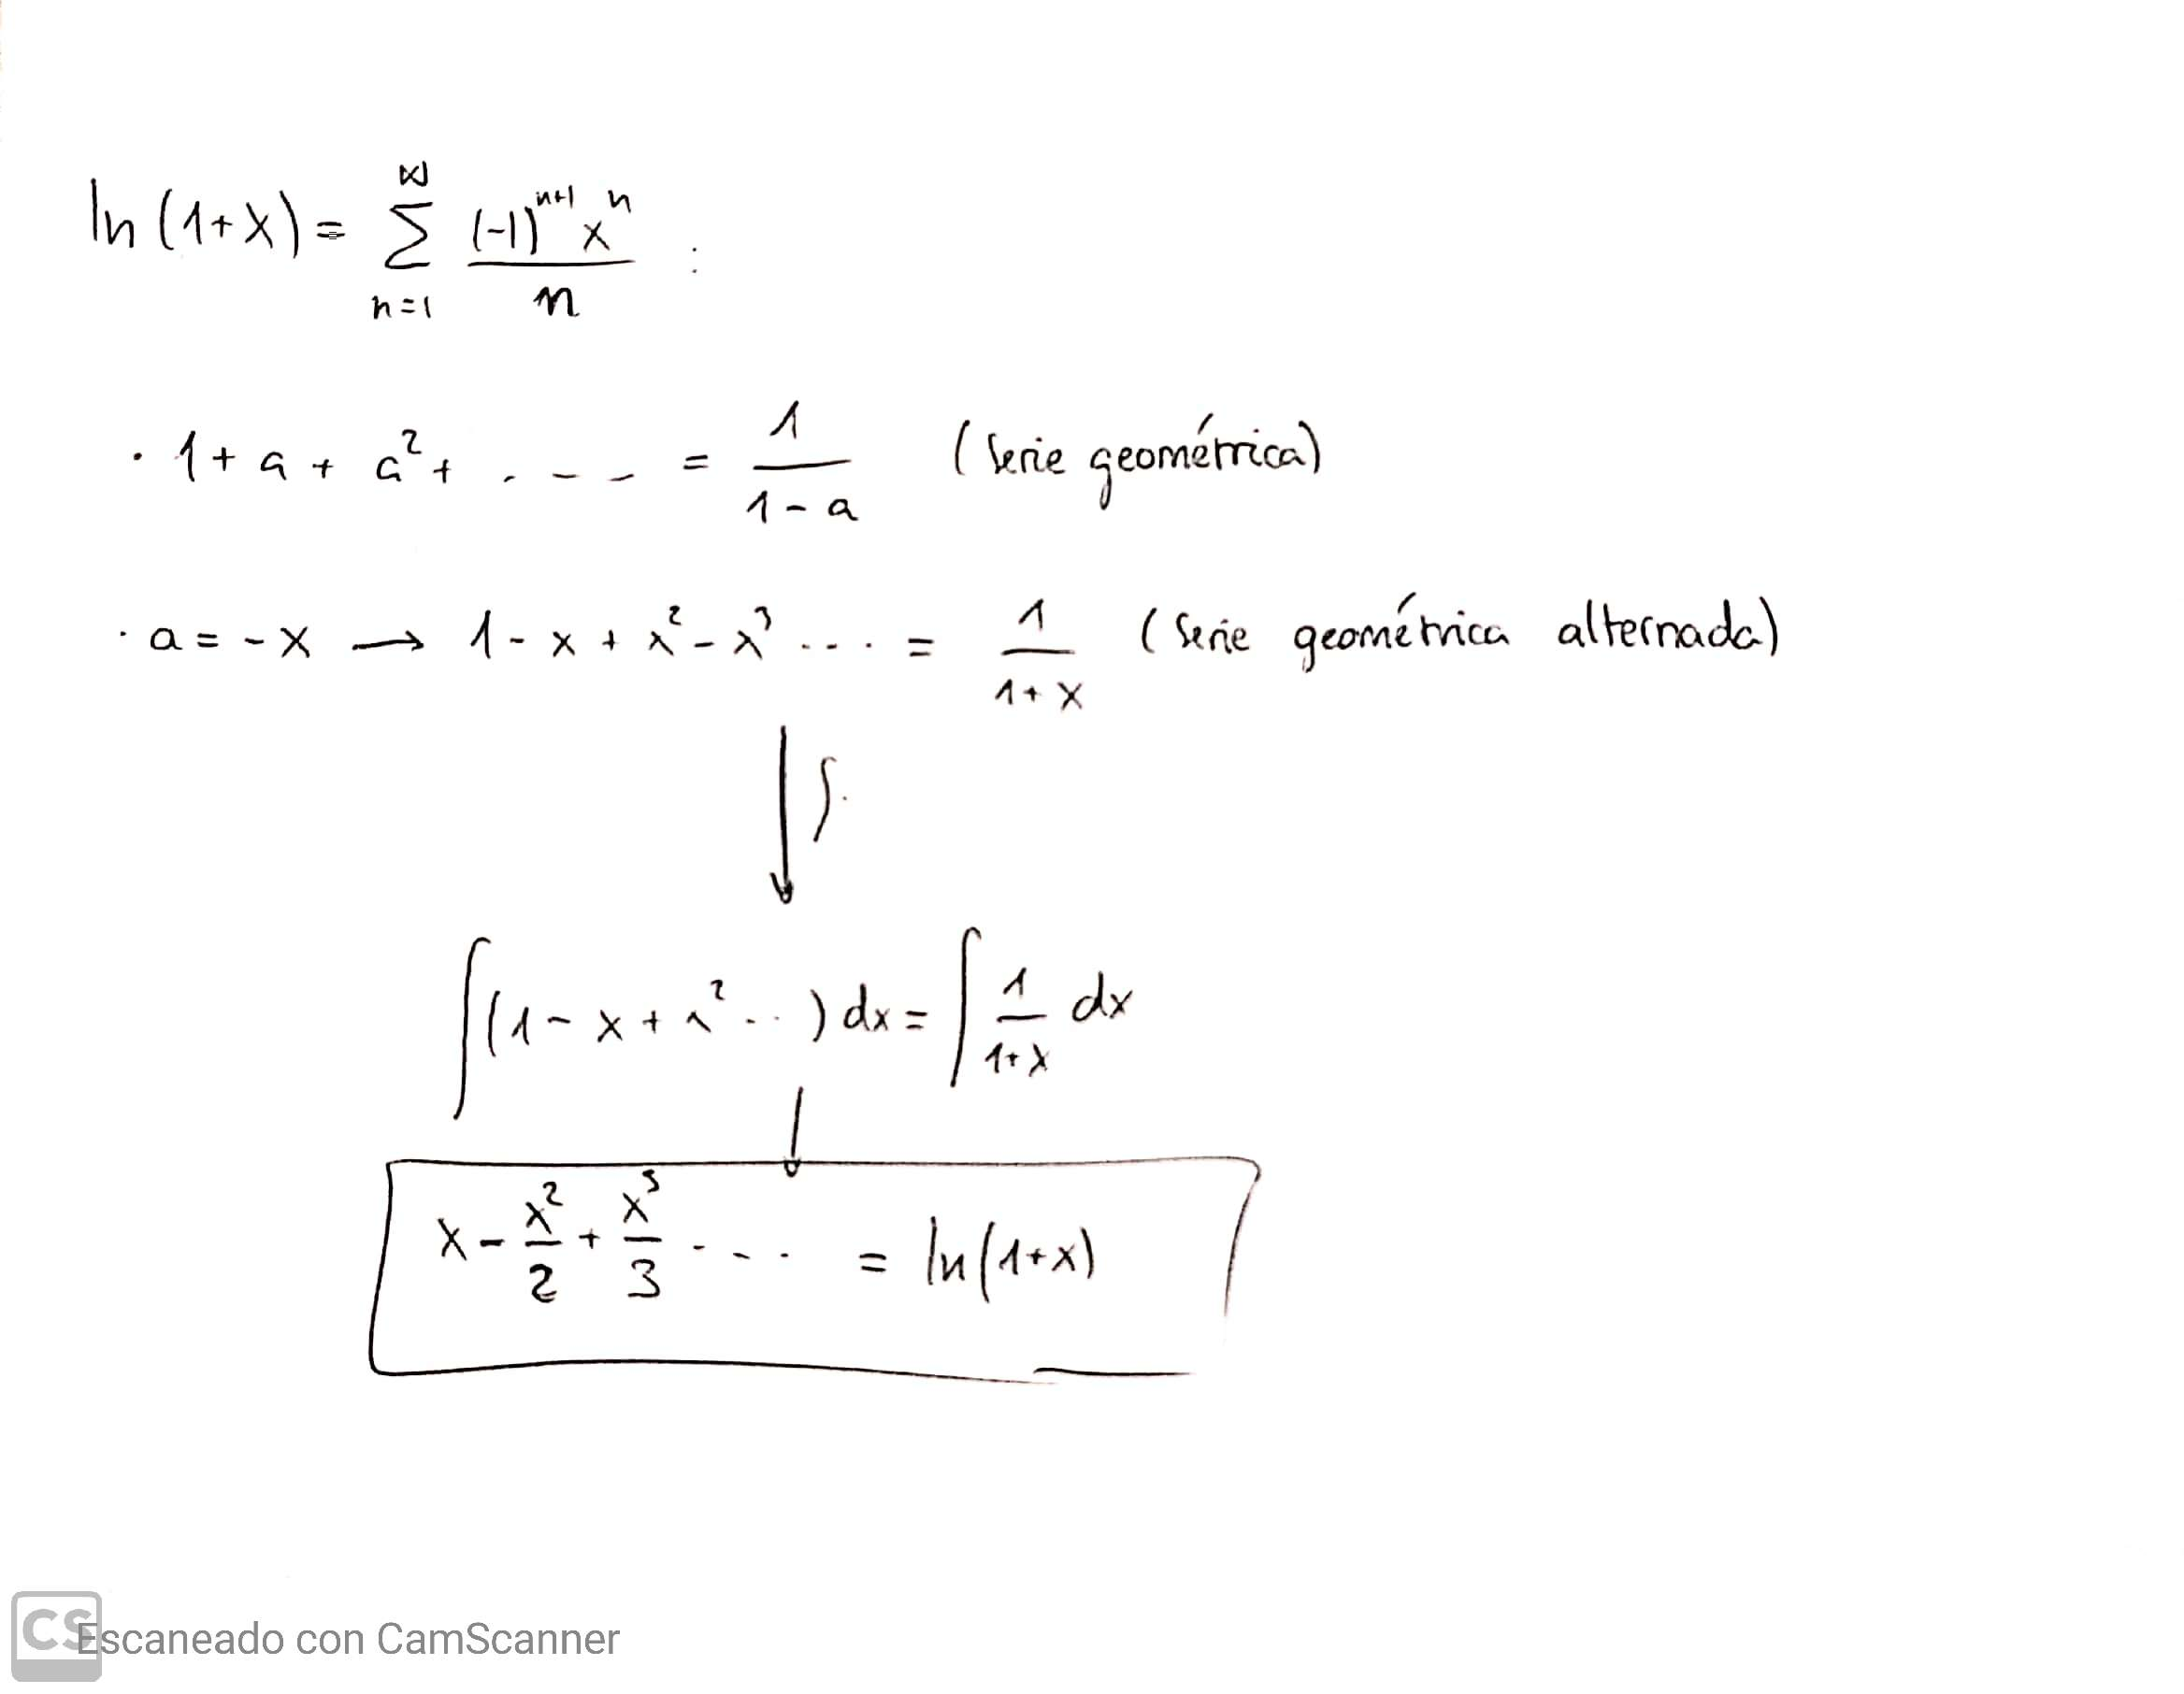 ln (1+x) = ∞ Σ n=1 (-1)^{n+1} x^n / n :
· 1 + a + a² + . - - - = 1 / 1-a (Serie geométrica)
· a = -x → 1 - x + x² - x³ .... = 1 / 1+x (Serie geométrica alternada)
↓ ∫.
∫(1 - x + x² ...) dx = ∫ 1 / 1+x dx
↓
x - x²/2 + x³/3 - ... = ln(1+x)
CS Escaneado con CamScanner